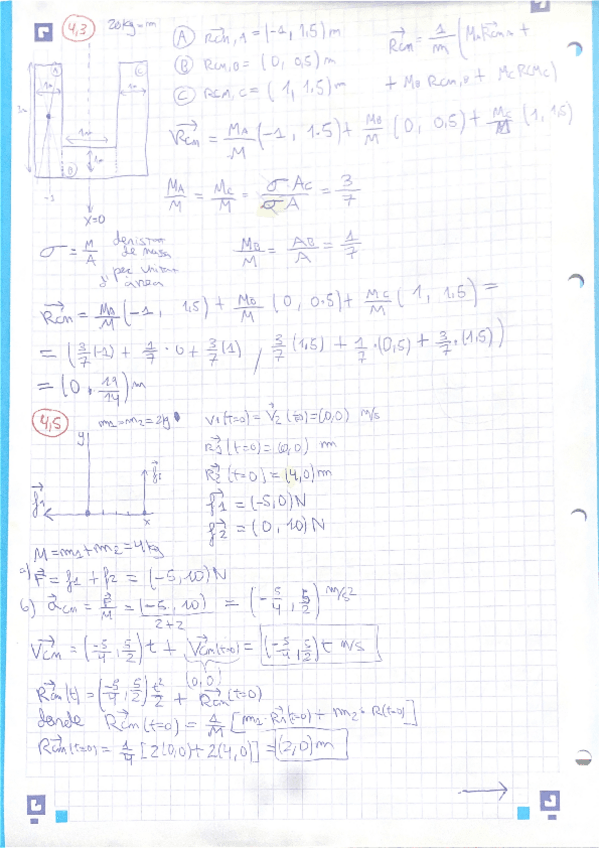 4,3 20kg = m
A Rcm,A = (-1, 1,5) m
Rcm = 1/m (MA Rcm,A +
B Rcm,B = (0, 0,5) m
+ MB Rcm,B + MC RCMC)
C Rcm,C = (1, 1.5) m
A C
1m 1m
1m
1m
B
-1
x=0
Rcm = MA/M (-1, 1.5) + MB/M (0, 0.5) + MC/M (1, 1,5)
MA/M = MC/M = σ·AC/σA = 3/7
σ = M/A densitat de masa per unitat d'àrea
MB/M = AB/A = 1/7
Rcm = MA/M (-1, 1,5) + MB/M (0, 0.5) + MC/M (1, 1.5) =
= (3/7(-1) + 1/7 · 0 + 3/7(1), 3/7(1,5) + 1/7·(0,5) + 3/7·(1,5))
= (0, 19/14) m
4,5 m1=m2=2kg
V1(t=0) = V2(t=0) = (0,0) m/s
y
R1(t=0) = (0,0) m
R2(t=0) = (4,0) m
f2
f1
x
f1 = (-5,0) N
f2 = (0, 10) N
M = m1+m2 = 4kg
a) F = f1 + f2 = (-5, 10) N
b) acm = F/M = (-5, 10)/2+2 = (-5/4, 5/2) m/s2
Vcm = (-5/4, 5/2) t + Vcm(t=0) = (-5/4, 5/2) t m/s
(0,0)
Rcm(t) = (-5/4, 5/2) t²/2 + Rcm(t=0)
donde Rcm(t=0) = 1/M [m1·R1(t=0) + m2·R(t=0)]
Rcm(t=0) = 1/4 [2(0,0) + 2(4,0)] = (2,0) m